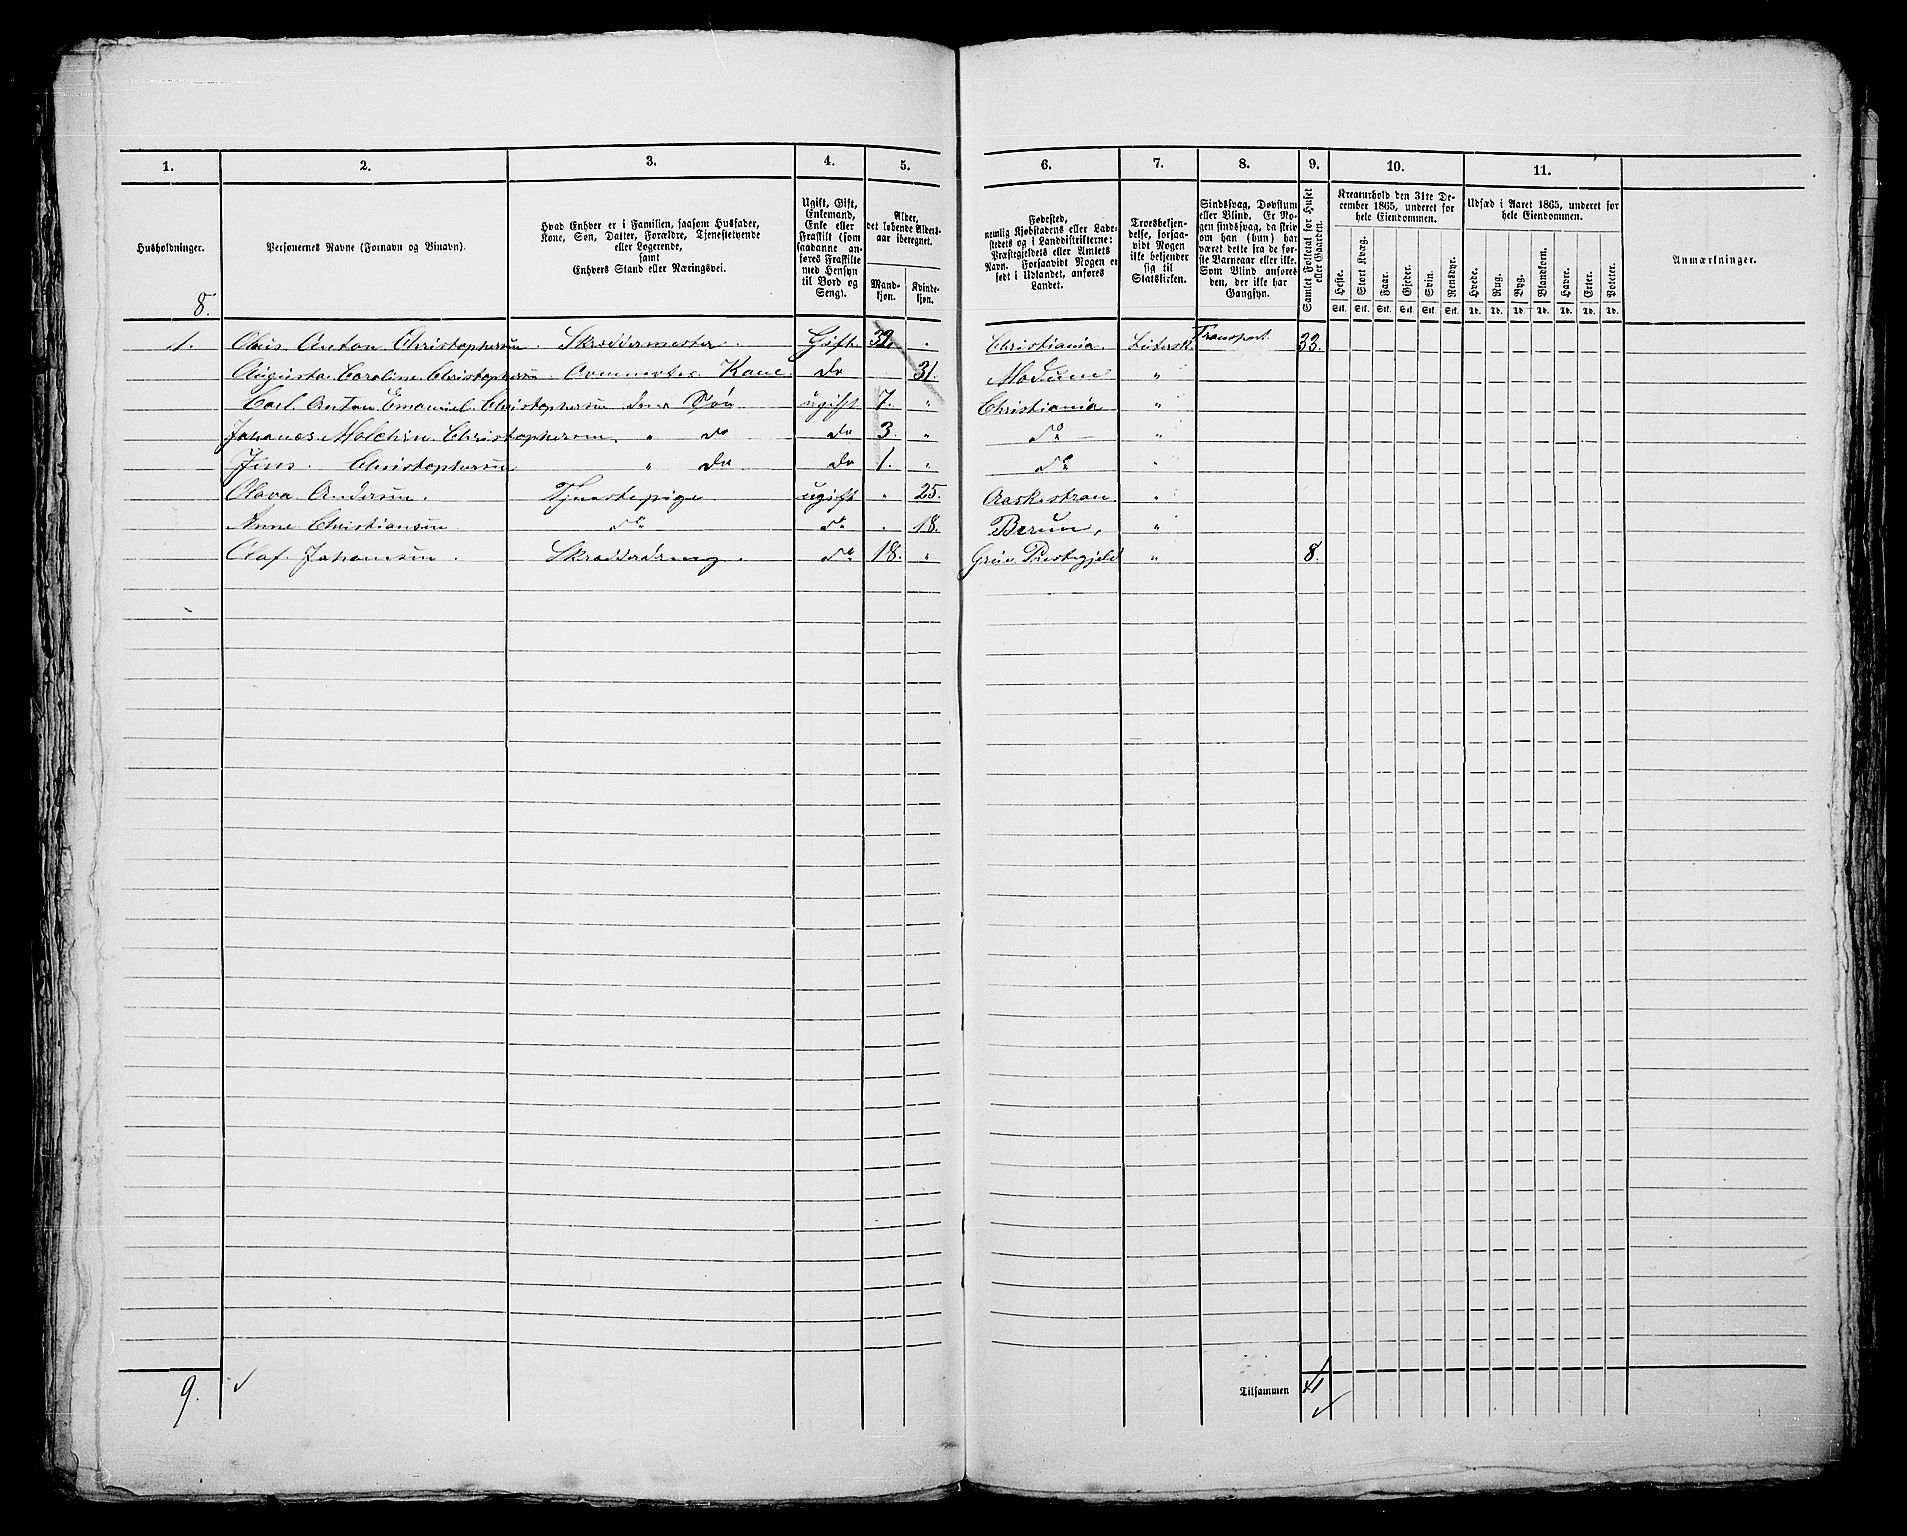 1. 2. 3. 4. 5. 6. 7. 8. 9. 10. 11.
Husholdninger.
8.
Personernes Navne (Fornavn og Binavn).
Hvad Enhver er i Familien, saasom Husfader,
Kone, Søn, Datter, Forældre, Tjenestetyende
eller Logerende,
samt
Enhvers Stand eller Næringsvei.
Ugift, Gift,
Enkemand,
Enke eller
Fraskilt (som
saadanne an-
føres Fraskilte
med Hensyn
til Bord og
Seng).
Alder,
det løbende Alders-
aar iberegnet.
Mand-
kjøn.
Kvinde-
kjøn.
Fødested,
nemlig Kjøbstadens eller Lade-
stedets og i Landdistrikterne:
Præstegjeldets eller Amtets
Navn. Forsaavidt Nogen er
født i Udlandet, anføres
Landet.
Troesbekjen-
delse, forsaa-
vidt Nogen
ikke bekjender
sig til
Statskirken.
Sindssvag, Døvstum
eller Blind. Er No-
gen sindssvag, da skriv
om han (hun) har
været dette fra de før-
ste Barneaar eller ikke.
Som Blind anføres
den, der ikke har
Gangsyn.
Samlet Folketal for Huset
eller Gaarden.
Kreaturhold den 31te De-
cember 1865, underet for
hele Eiendommen.
Heste. Stort Kvæg. Faar. Gjeder. Svin. Rensdyr.
Stk. Stk. Stk. Stk. Stk. Stk.
Udsæd i Aaret 1865, underet for
hele Eiendommen.
Hvede. Rug. Byg. Blandkorn. Havre. Erter. Poteter.
Td. Td. Td. Td. Td. Td. Td.
Anmærkninger.
1. Olaus Anton Christophersen. Skræddermester. Gift 32. " Christiania. Luthersk. Transport 33.
Augusta Caroline Christophersen. Kone. do 31. Modum "
Carl Anton Emanuel Christophersen Søn ugift 7. " Christiania "
Johanes Christophersen " do do 3. " do "
Jens Christophersen " do do 1. " do "
Olava Andersen. Tjenestepige ugift " 25. Aaskestran "
Anne Christiansen do do " 18. Berum, "
Olaf Johansen. Skrædderdreng. do 18. " Grue Prestegjeld " 8.
9.
Tilsammen 41